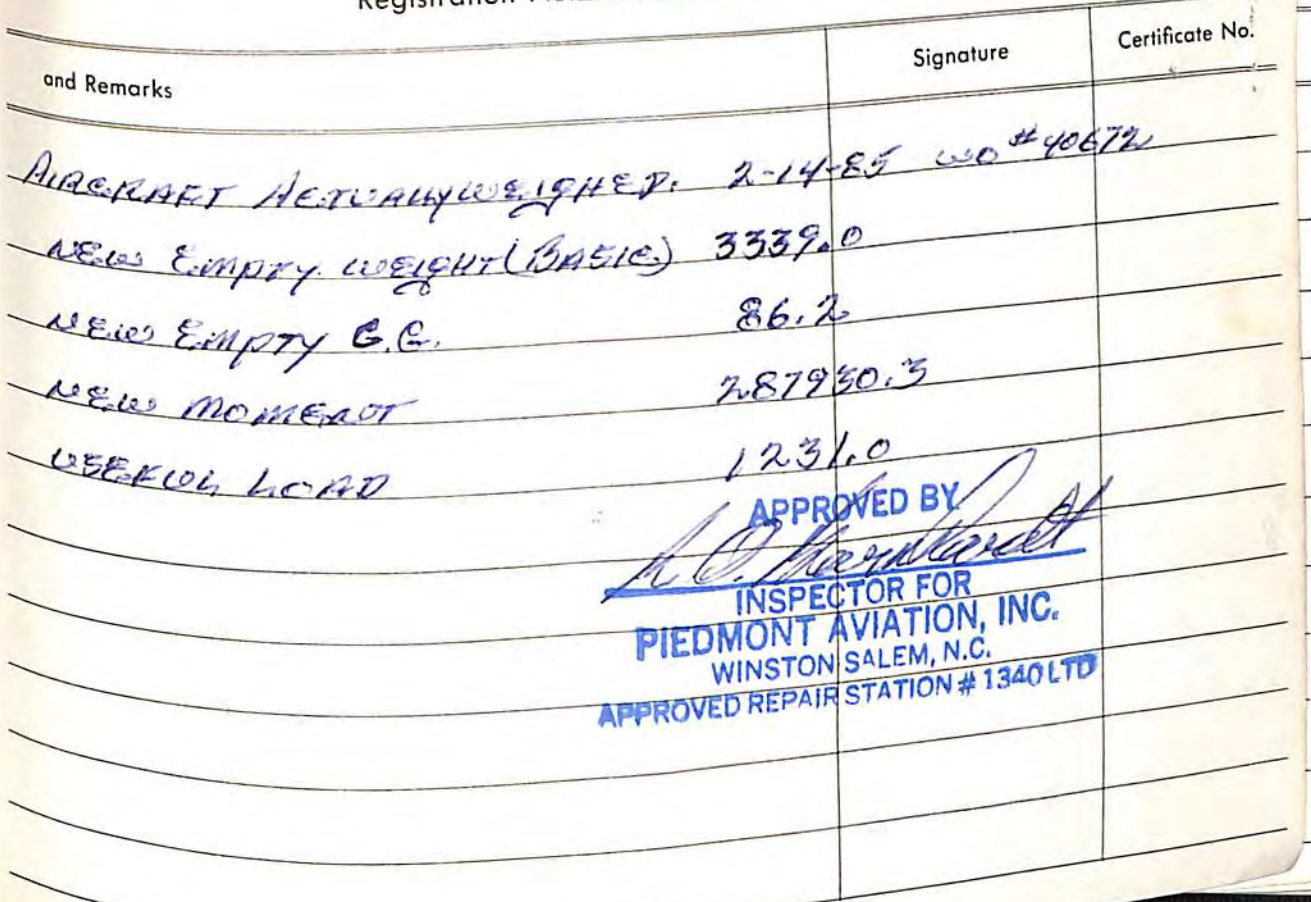 and Remarks Signature Certificate No.
AIRCRAFT ACTUALLY WEIGHED. 2-14-85 WO #40672
NEW EMPTY WEIGHT (BASIC) 3339.0
NEW EMPTY C.G. 86.2
NEW MOMENT 287930.3
USEFUL LOAD 1231.0
APPROVED BY
INSPECTOR FOR
PIEDMONT AVIATION, INC.
WINSTON SALEM, N.C.
APPROVED REPAIR STATION # 1340 LTD